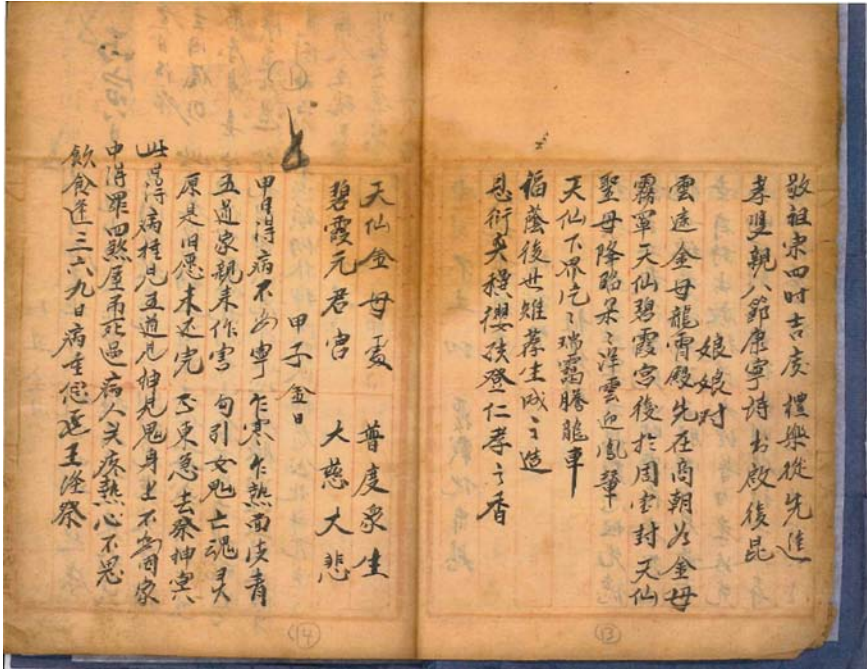 敬祖宗四时吉庆 禮樂從先進
孝双親八節康寧 詩书啟後昆
娘娘对
雲遠金母龍霄殿先在商朝為金母
霧罩天仙碧霞宫後於周室封天仙
聖母降臨朵々洋雲迎鳳輦
天仙下界片々瑞靄騰龍車
福蔭後世雉荐生成之造
恩衍 褓攖孩登仁孝之香
13
天仙金母 普度眾生
碧霞元君宫 大慈大悲
甲子金日
甲日得病不安寧乍寒乍熱面皮青
五道家親来作害勾引女鬼亡魂灵
原是旧愿未还完 东急去祭神堂
此 得病撞見五道見神見鬼身上不 因家
中得罪四煞屋吊死過病人头疼熱心不思
飲食逢三六九日病重 王 祭
14